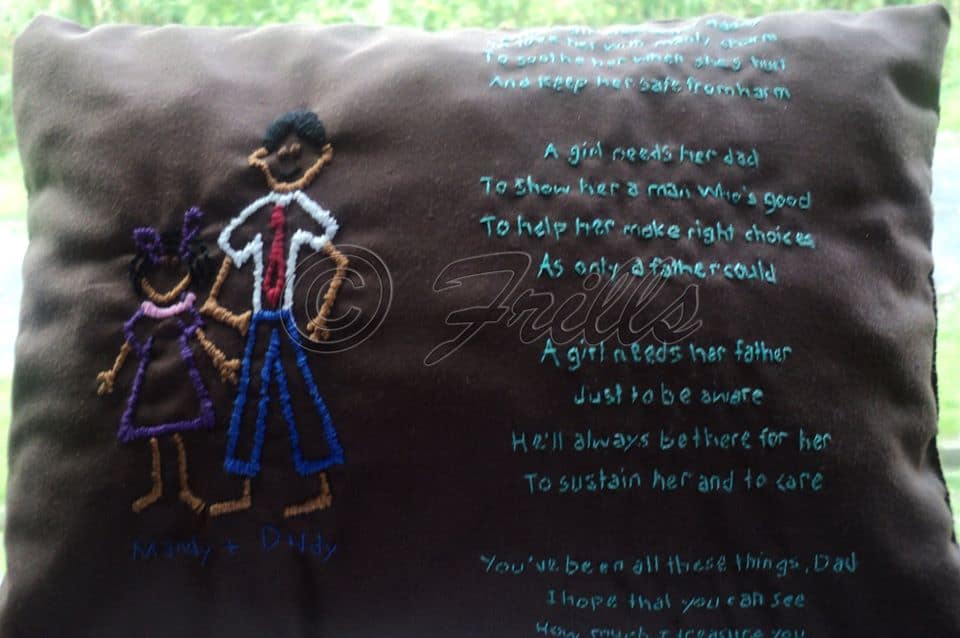 To love her with manly charm
To soothe her when she's hurt
And keep her safe from harm
A girl needs her dad
To show her a man who's good
To help her make right choices
As only a father could
A girl needs her father
Just to be aware
He'll always be there for her
To sustain her and to care
You've been all these things, Dad
I hope that you can see
How much I treasure you
Mandy + Daddy
© Frills